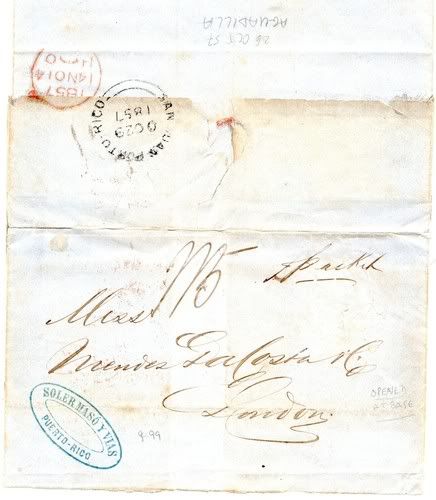 AGUADILLA
26 OCT 57
1857
14 NO 14
SAN JUAN PORTO-RICO
OC 29
1857
1/5
p packet
Messrs
Mendes Da Costa & Co
London
SOLER MASÓ Y VIAS
PUERTO-RICO
9.99
OPENED
AT BASE